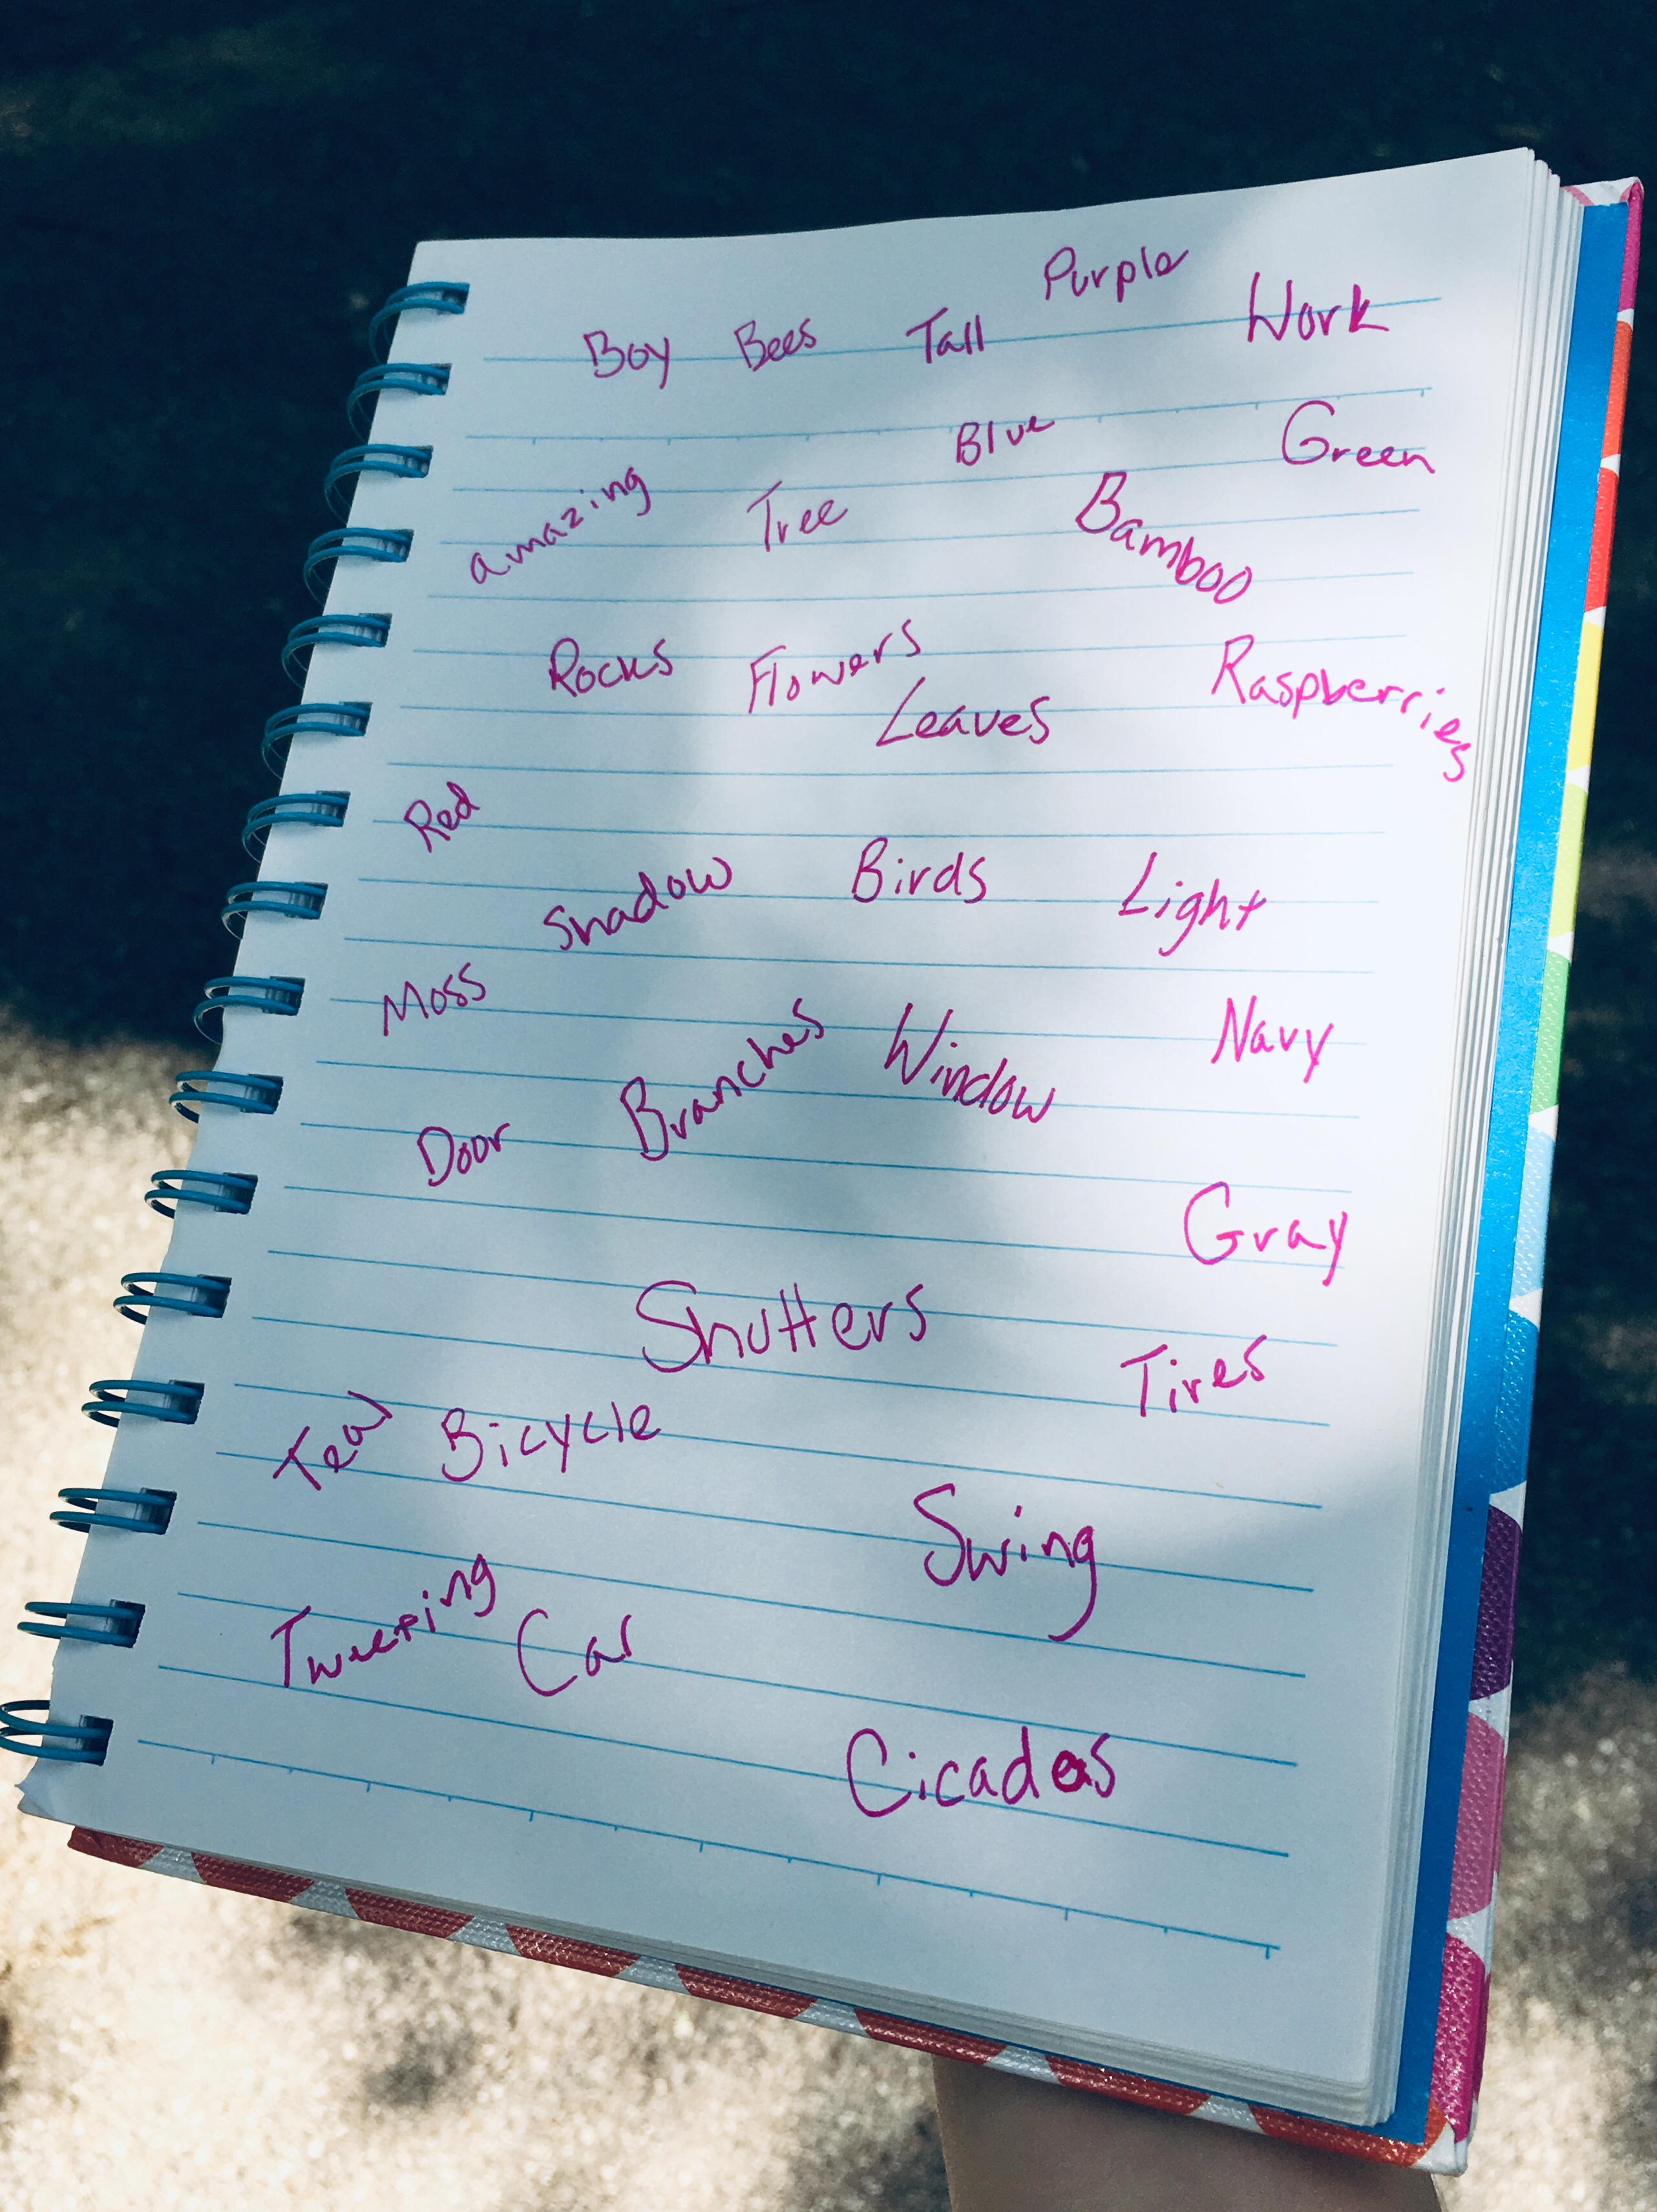 Purple
Boy Bees Tall Work
Blue Green
amazing Tree Bamboo
Rocks Flowers Raspberries
Leaves
Red
Shadow Birds Light
Moss Branches Window Navy
Door
Gray
Shutters
Tires
Bicycle
Swing
Car
Cicadas